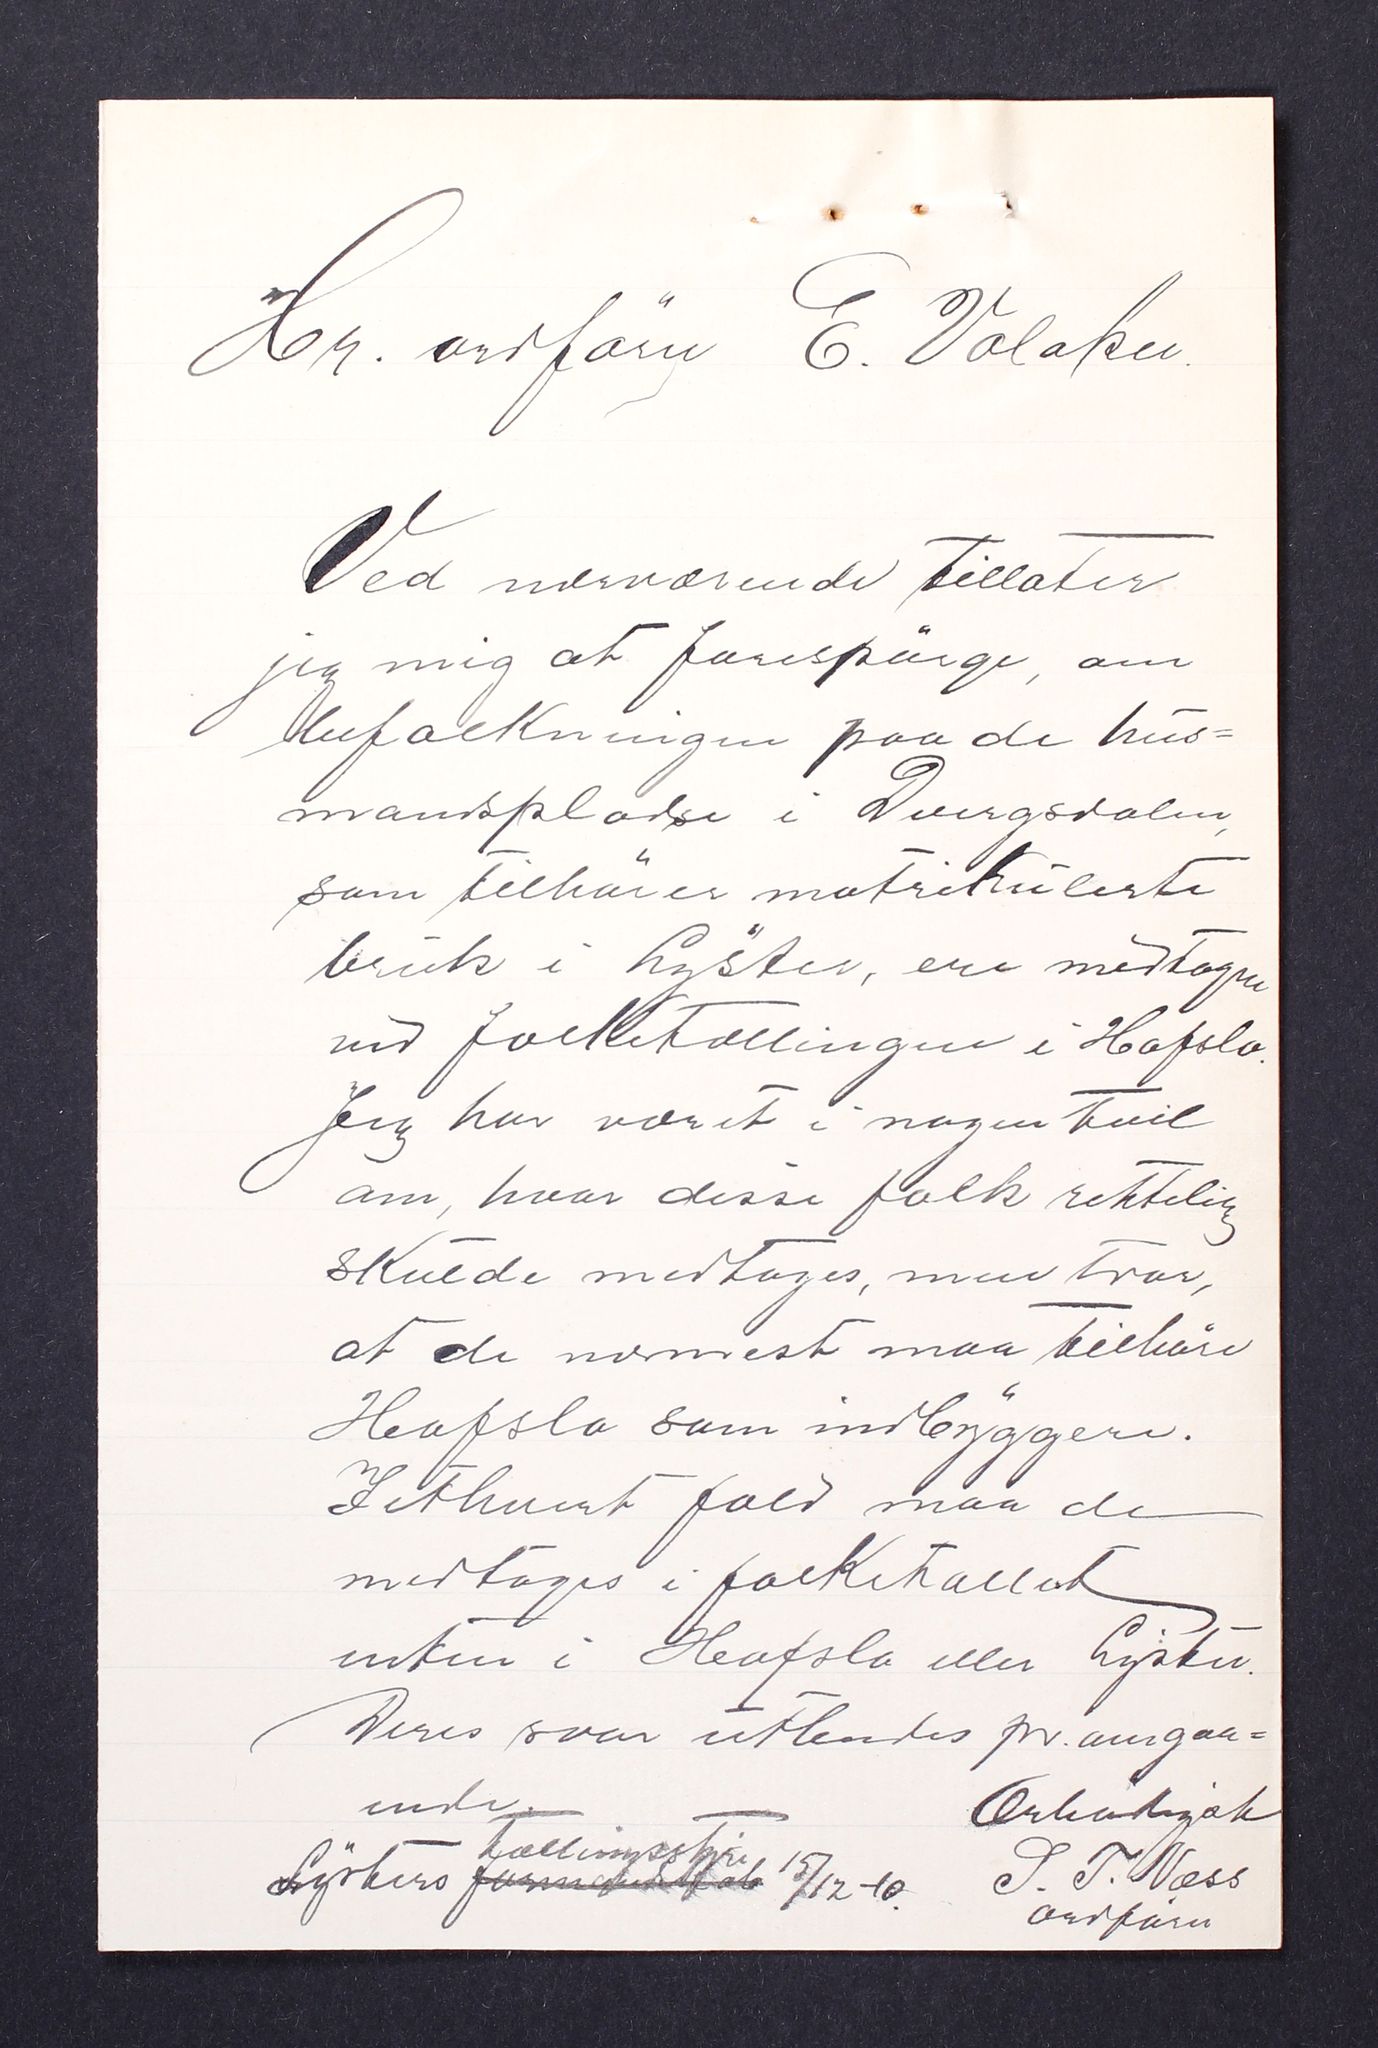 Hr. ordförer E. Volaker.
Ved nærværende tillater
jeg mig at forespörge, om
befolkningen paa de hus=
mandspladse i Dvergsdalen,
som tilhörer matrikulerte
bruk i Lyster, ere medtagne
ved folketællingen i Hafslo.
Jeg har været i nogen tvil
om, hvor disse folk rettelig
skulde medtages, men tror,
at de nærmest maa tilhöre
Hafslo som indbyggere.
I ethvert fald maa de
medtages i folketallet
enten i Hafslo eller Lyster.
Deres svar utbedes pr. omgaa=
ende.
Ærbödigst
Lysters tællingsstyre 15/12-10.
S. T. Næss
ordförer